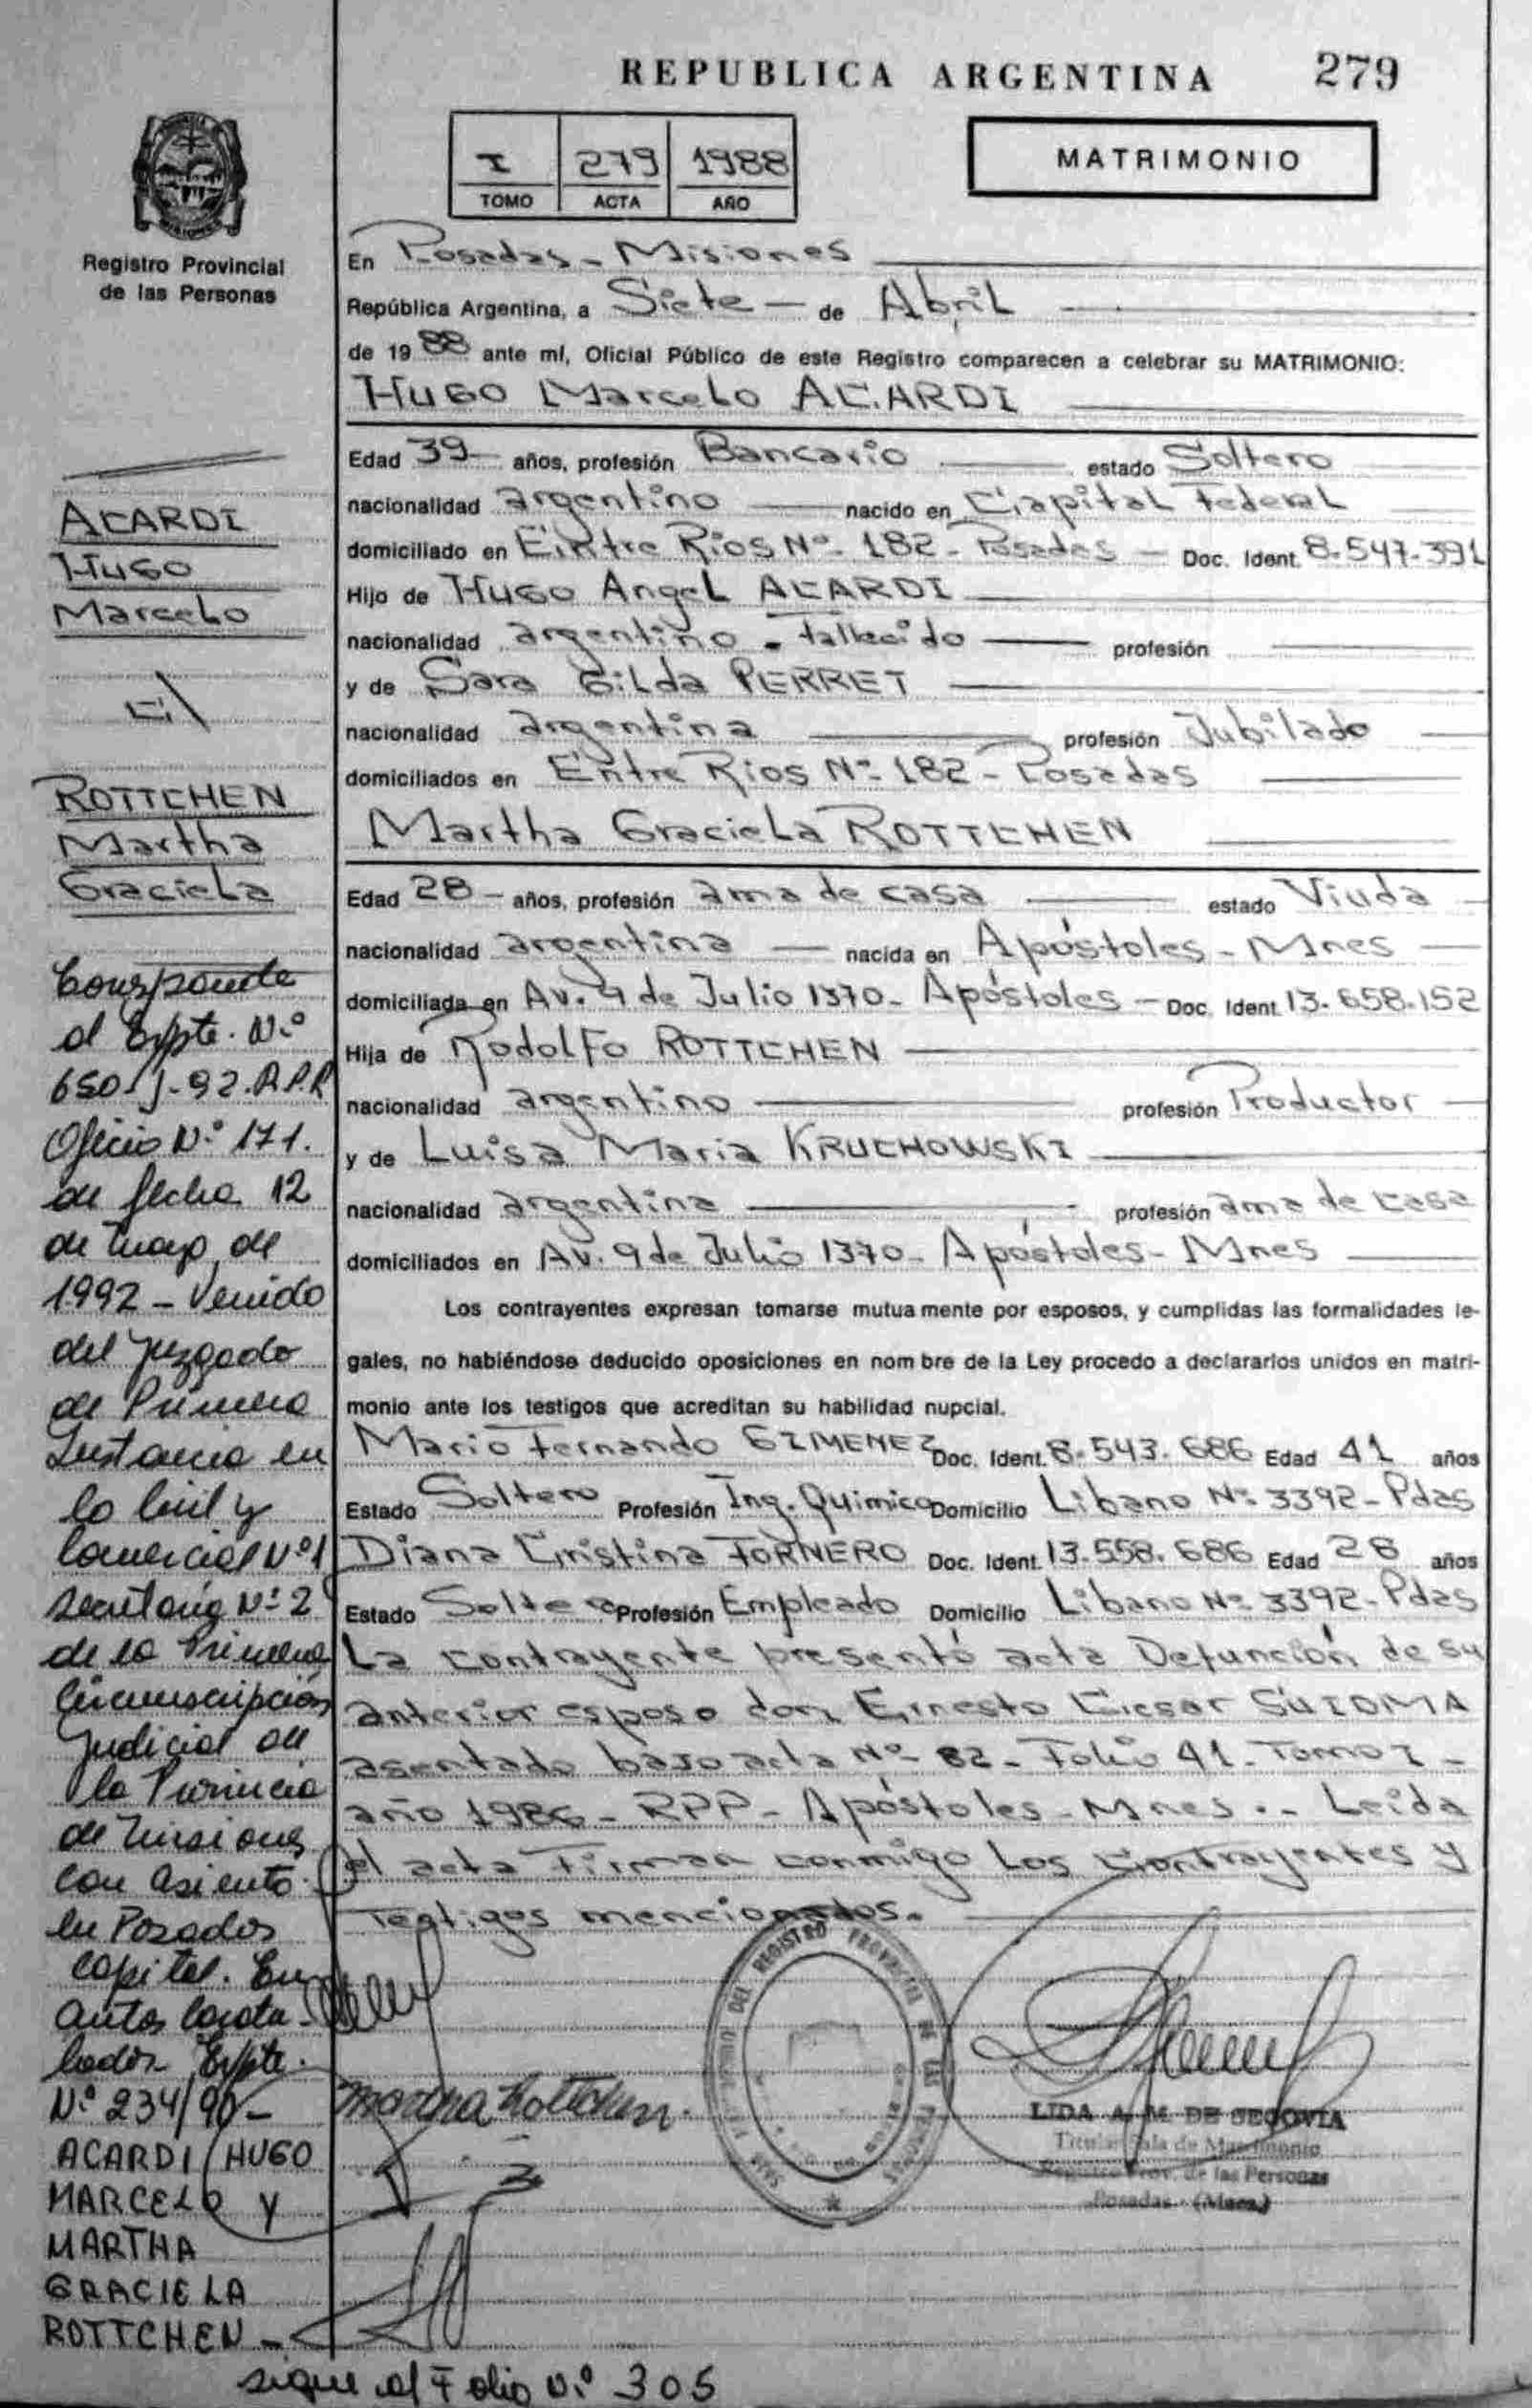 REPUBLICA ARGENTINA 279
I 279 1988
TOMO ACTA AÑO
MATRIMONIO
Registro Provincial
de las Personas
En Posadas - Misiones
República Argentina, a Siete de Abril
de 1988 ante mí, Oficial Público de este Registro comparecen a celebrar su MATRIMONIO:
Hugo Marcelo ACARDI
Edad 39 años, profesión Bancario estado Soltero
nacionalidad argentino nacido en Capital Federal
domiciliado en Entre Rios Nº 182 - Posadas - Doc. Ident. 8.547.391
Hijo de Hugo Angel ACARDI
nacionalidad argentino - fallecido profesión
y de Sara Gilda PERRET
nacionalidad argentina profesión Jubilado
domiciliados en Entre Rios Nº 182 - Posadas
Martha Graciela ROTTCHEN
Edad 28 años, profesión ama de casa estado Viuda
nacionalidad argentina nacida en Apóstoles - Mnes
domiciliada en Av. 9 de Julio 1370 - Apóstoles - Doc. Ident. 13.658.152
Hija de Rodolfo ROTTCHEN
nacionalidad argentino profesión Productor
y de Luisa Maria KRUCHOWSKI
nacionalidad argentina profesión ama de casa
domiciliados en Av. 9 de Julio 1370 - Apóstoles - Mnes
Los contrayentes expresan tomarse mutuamente por esposos, y cumplidas las formalidades le-
gales, no habiéndose deducido oposiciones en nombre de la Ley procedo a declararlos unidos en matri-
monio ante los testigos que acreditan su habilidad nupcial.
Mario Fernando GIMENEZ Doc. Ident. 8.543.686 Edad 41 años
Estado Soltero Profesión Ing. Quimico Domicilio Libano Nº 3392 - Pdas
Diana Cristina TORNERO Doc. Ident. 13.558.686 Edad 28 años
Estado Soltera Profesión Empleado Domicilio Libano Nº 3392 - Pdas
La contrayente presentó acta Defunción de su
anterior esposo don Ernesto Cesar
asentado bajo acta Nº 82 - Folio 41 - Tomo I -
año 1986 - RPP - Apóstoles - Mnes .- Leída
el acta firman conmigo los contrayentes y
testigos mencionados.
ACARDI
Hugo
Marcelo
c/
ROTTCHEN
Martha
Graciela
Corresponde
al Expte. Nº
650-J-92.R.P.P.
Oficio Nº 171.
de fecha 12
de mayo de
1992 - Venido
del Juzgado
de Primera
Instancia en
lo Civil y
Comercial Nº 1
Secretaría Nº 2
de la Primera
Circunscripción
Judicial de
la Provincia
de Misiones
con asiento
en Posadas
Capital. En
autos caratu-
lados Expte.
Nº 234/90 -
ACARDI HUGO
MARCELO y
MARTHA
GRACIELA
ROTTCHEN -
sigue al Folio Nº 305
Martha Rottchen.
DEL REGISTRO PROVINCIAL DE LAS PERSONAS
LIDA A. M. DE SEGOVIA
Titular Sala de Matrimonio
Registro Prov. de las Personas
Posadas - (Mnes.)